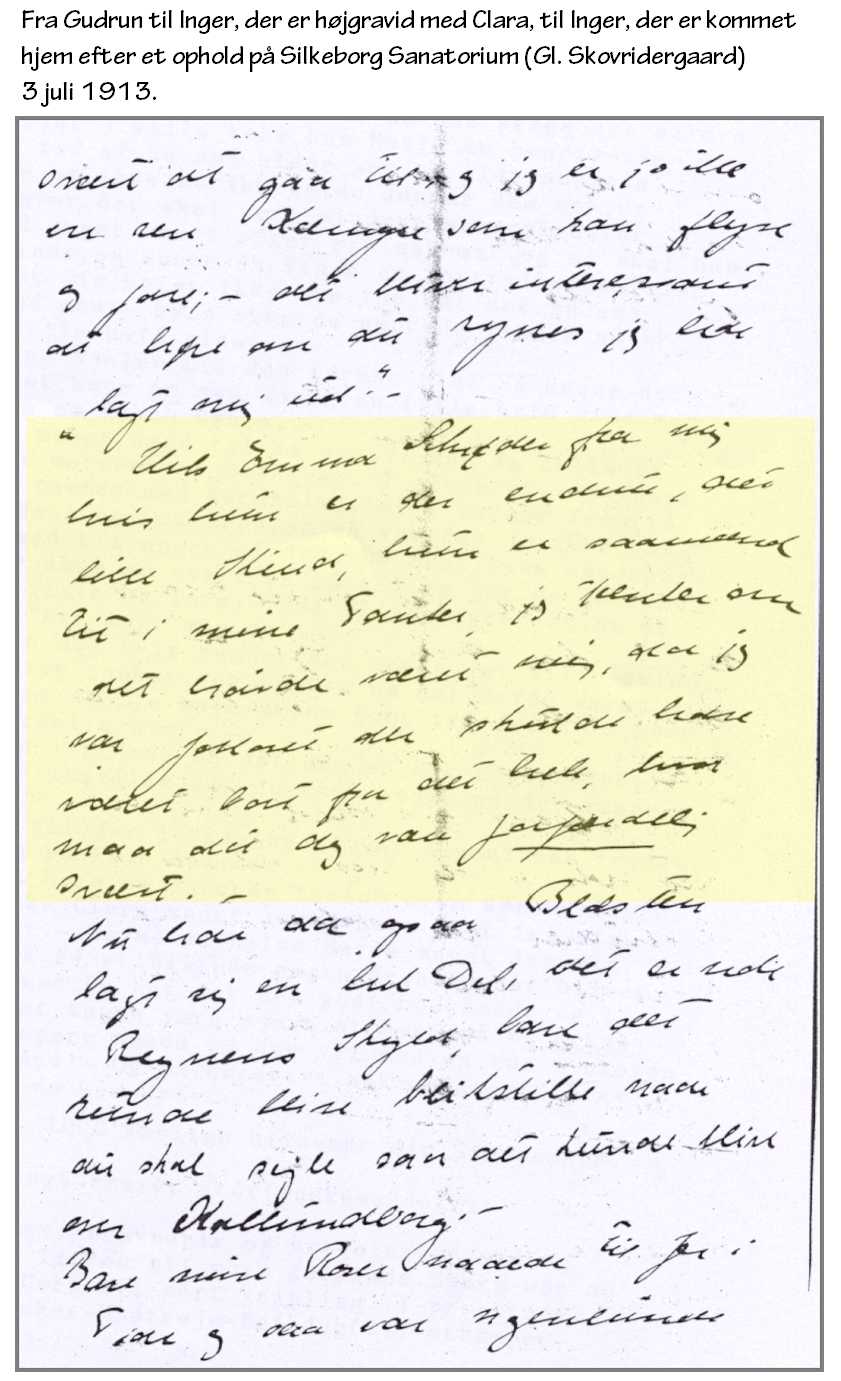 Fra Gudrun til Inger, der er højgravid med Clara, til Inger, der er kommet
hjem efter et ophold på Silkeborg Sanatorium (Gl. Skovridergaard)
3 juli 1913.
svært at gaa til og jeg er jo ikke
en ren som kan flyve
og fare; - det bliver interessant
at høre om du synes jeg har
lagt mig ud." -
" Hils Emma Schrøder fra mig
hvis hun er der endnu, det
lille Skind, hun er saamænd
tit i mine Tanker, jeg tænker om
det havde været mig, da jeg
var forlovet der skulde have
været bort fra det hele, hvor
maa det dog være forfærdelig
svært. -
Nu har da ogsaa Blæsten
lagt sig en hel Del, det er nok
Regnens Skyld, bare det
kunde blive blikstille naar
du skal sejle saa det kunde blive
over Kallundborg. -
Bare mine Roser naaede til Jer i
Tide og saa var nogenlunde